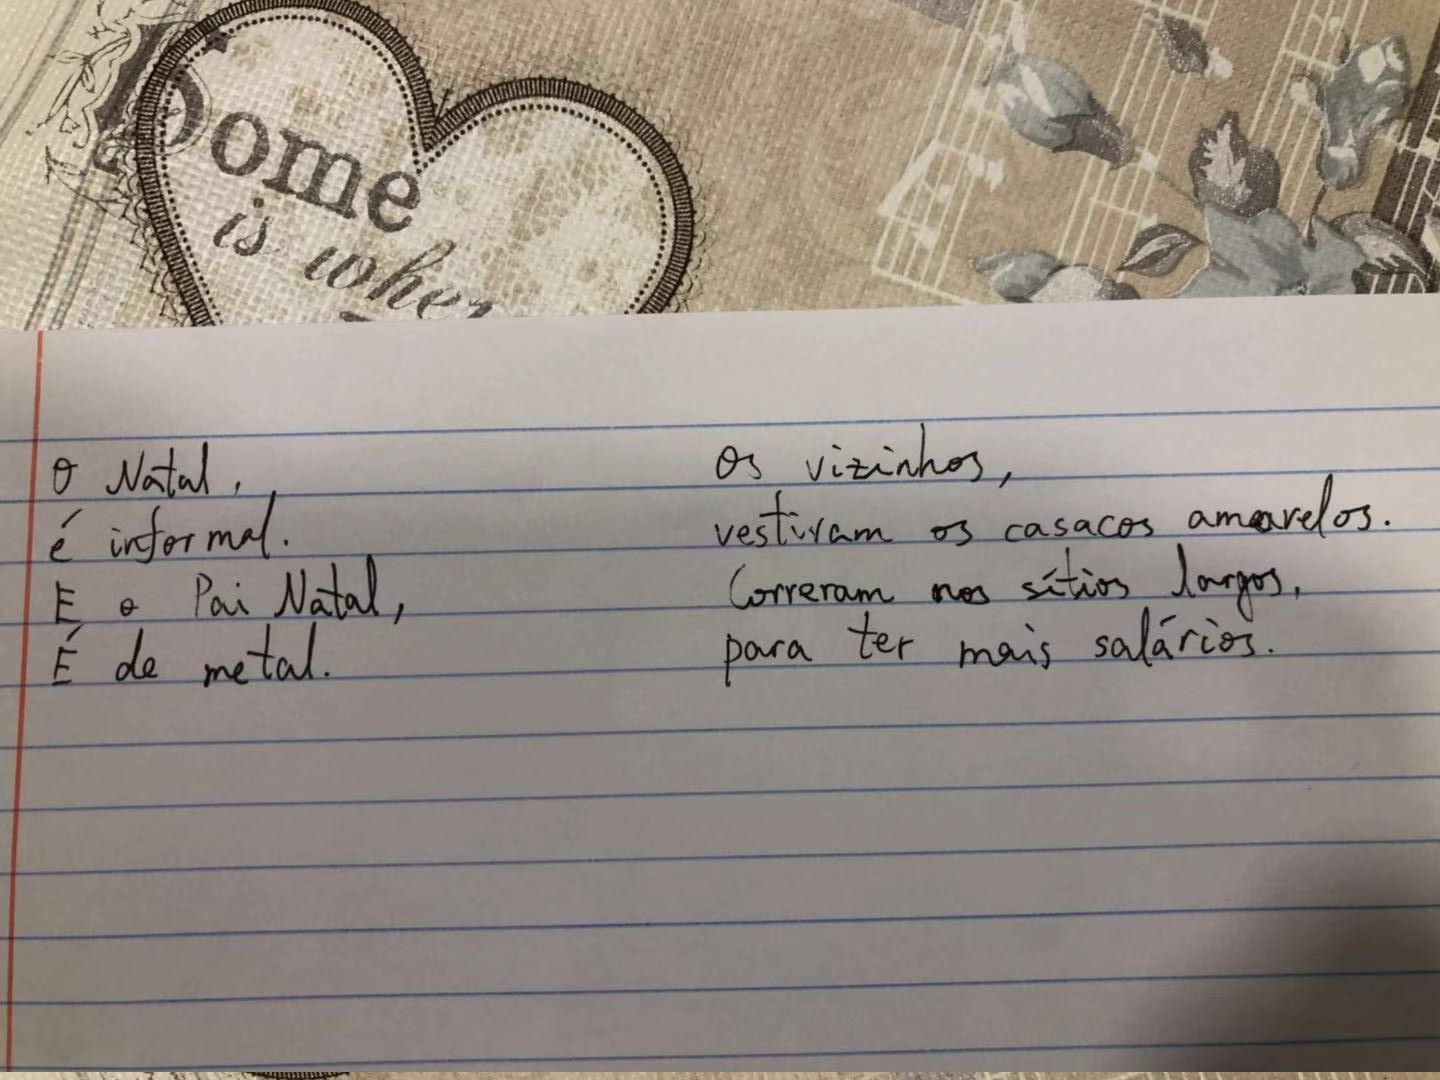 Home
is wher
O Natal,
é informal.
E o Pai Natal,
É de metal.
Os vizinhos,
vestiram os casacos amarelos.
Correram nos sítios largos,
para ter mais salários.